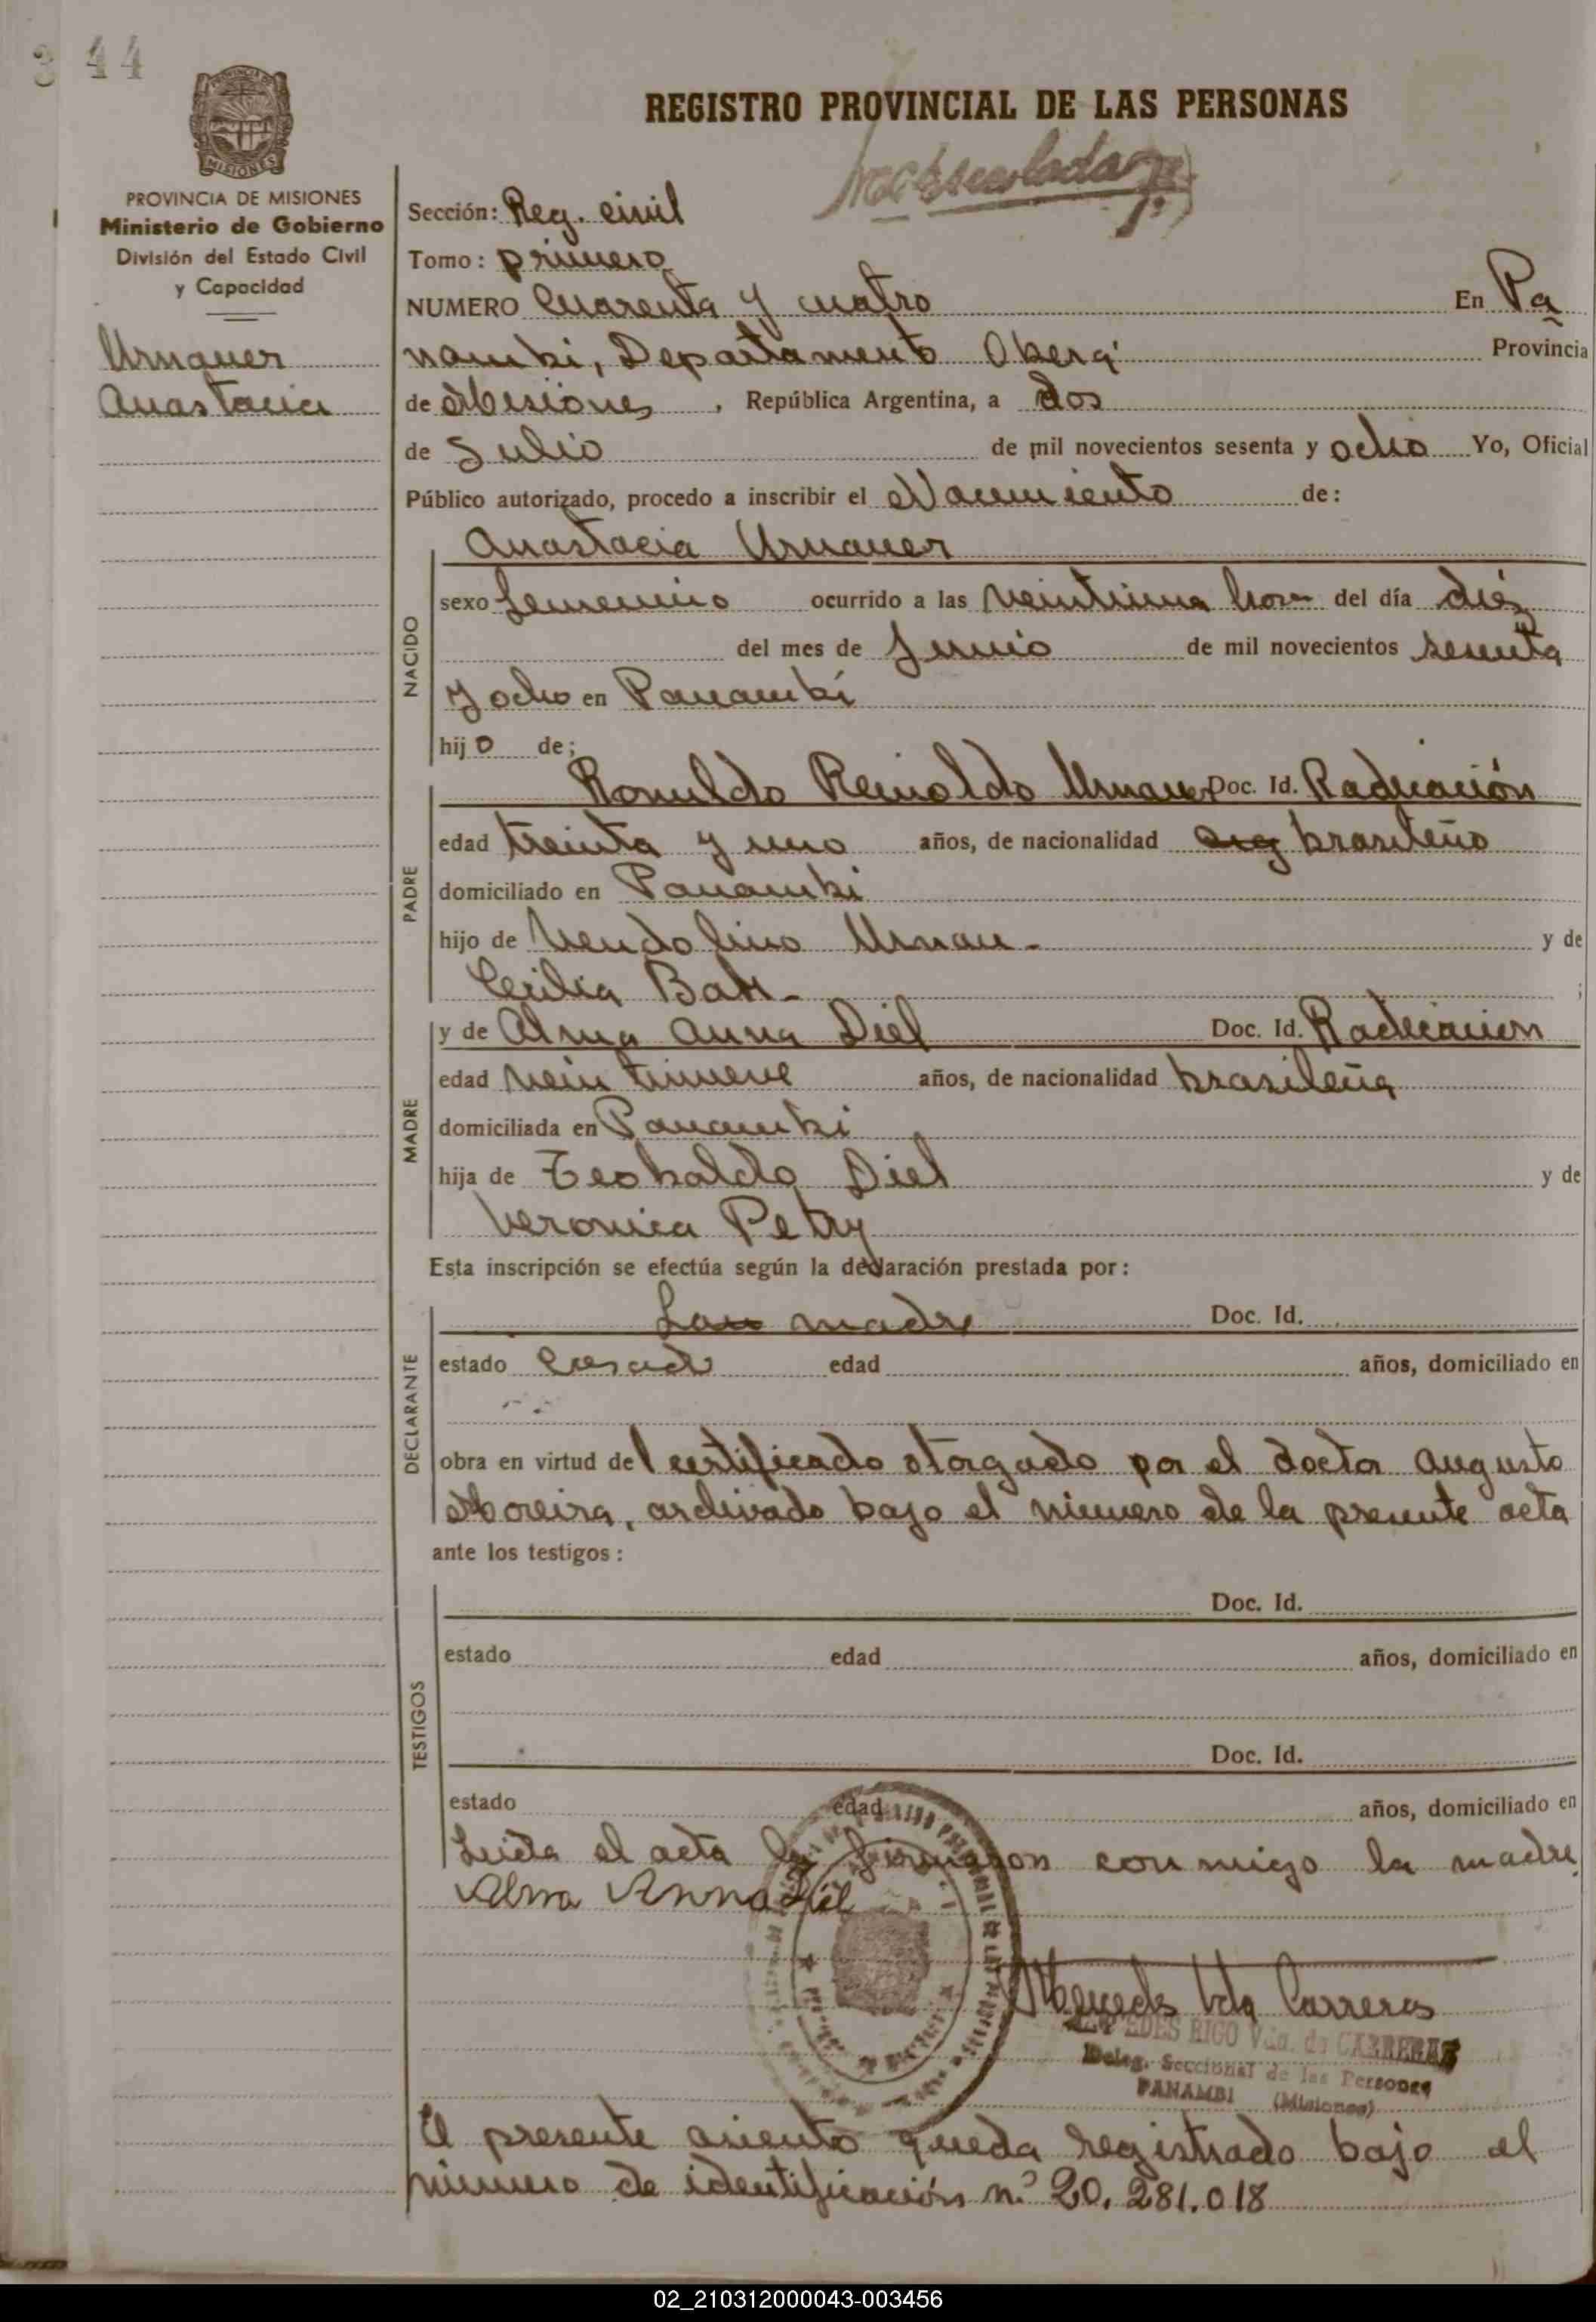 3 44
MISIONES
PROVINCIA DE MISIONES
Ministerio de Gobierno
División del Estado Civil
y Capacidad
Urnauer
Anastacia
REGISTRO PROVINCIAL DE LAS PERSONAS
Sección: Reg. civil
Tomo: primero
NUMERO Cuarenta y cuatro En Pa
nambi, Departamento Oberá Provincia
de Misiones, República Argentina, a dos
de Julio de mil novecientos sesenta y ocho Yo, Oficial
Público autorizado, procedo a inscribir el Nacimiento de:
Anastacia Urnauer
NACIDO
sexo femenino ocurrido a las veintiuna hora del día diéz
del mes de Junio de mil novecientos sesenta
y ocho en Panambí
hijo de;
PADRE
Romildo Reinoldo Urnauer Doc. Id. Radicación
edad treinta y uno años, de nacionalidad brasileño
domiciliado en Panambi
hijo de Vendolino Urnau - y de
Cecilia Bak - ;
MADRE
y de Alma Anna Diel Doc. Id. Radicacion
edad veintinueve años, de nacionalidad brasileña
domiciliada en Panambi
hija de Teobaldo Diel y de
Veronica Petry
Esta inscripción se efectúa según la declaración prestada por:
DECLARANTE
La madre Doc. Id.
estado casad edad años, domiciliado en
obra en virtud del certificado otorgado por el doctor Augusto
Moreira, archivado bajo el número de la presente acta
ante los testigos:
TESTIGOS
Doc. Id.
estado edad años, domiciliado en
Doc. Id.
estado edad años, domiciliado en
Leida el acta la firmaron conmigo la madre
Alma Anna Diel
Mercedes Vda Carreras
MERCEDES RIGO Vda. de CARRERAS
Deleg. Seccional de las Personas
PANAMBI (Misiones)
El presente asiento queda registrado bajo el
número de identificación nº 20.281.018
02_210312000043-003456